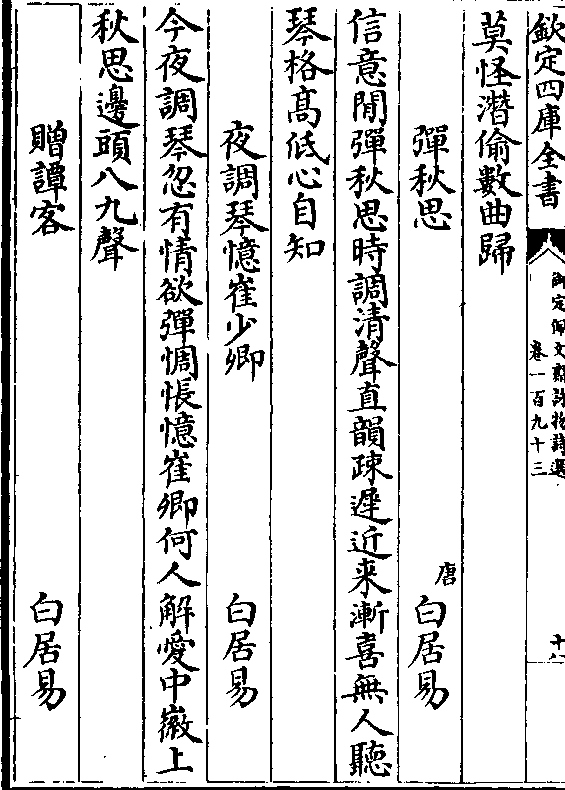 欽定四庫全書
御定佩文齋詠物詩選
卷一百九十三
莫怪潛偷數曲歸
彈秋思
唐 白居易
信意閒彈秋思時調清聲直韻疎遲近来漸喜無人聽
琴格高低心自知
夜調琴憶崔少卿
白居易
今夜調琴忽有情欲彈惆悵憶崔卿何人解愛中徽上
秋思邊頭八九聲
贈譚客
白居易